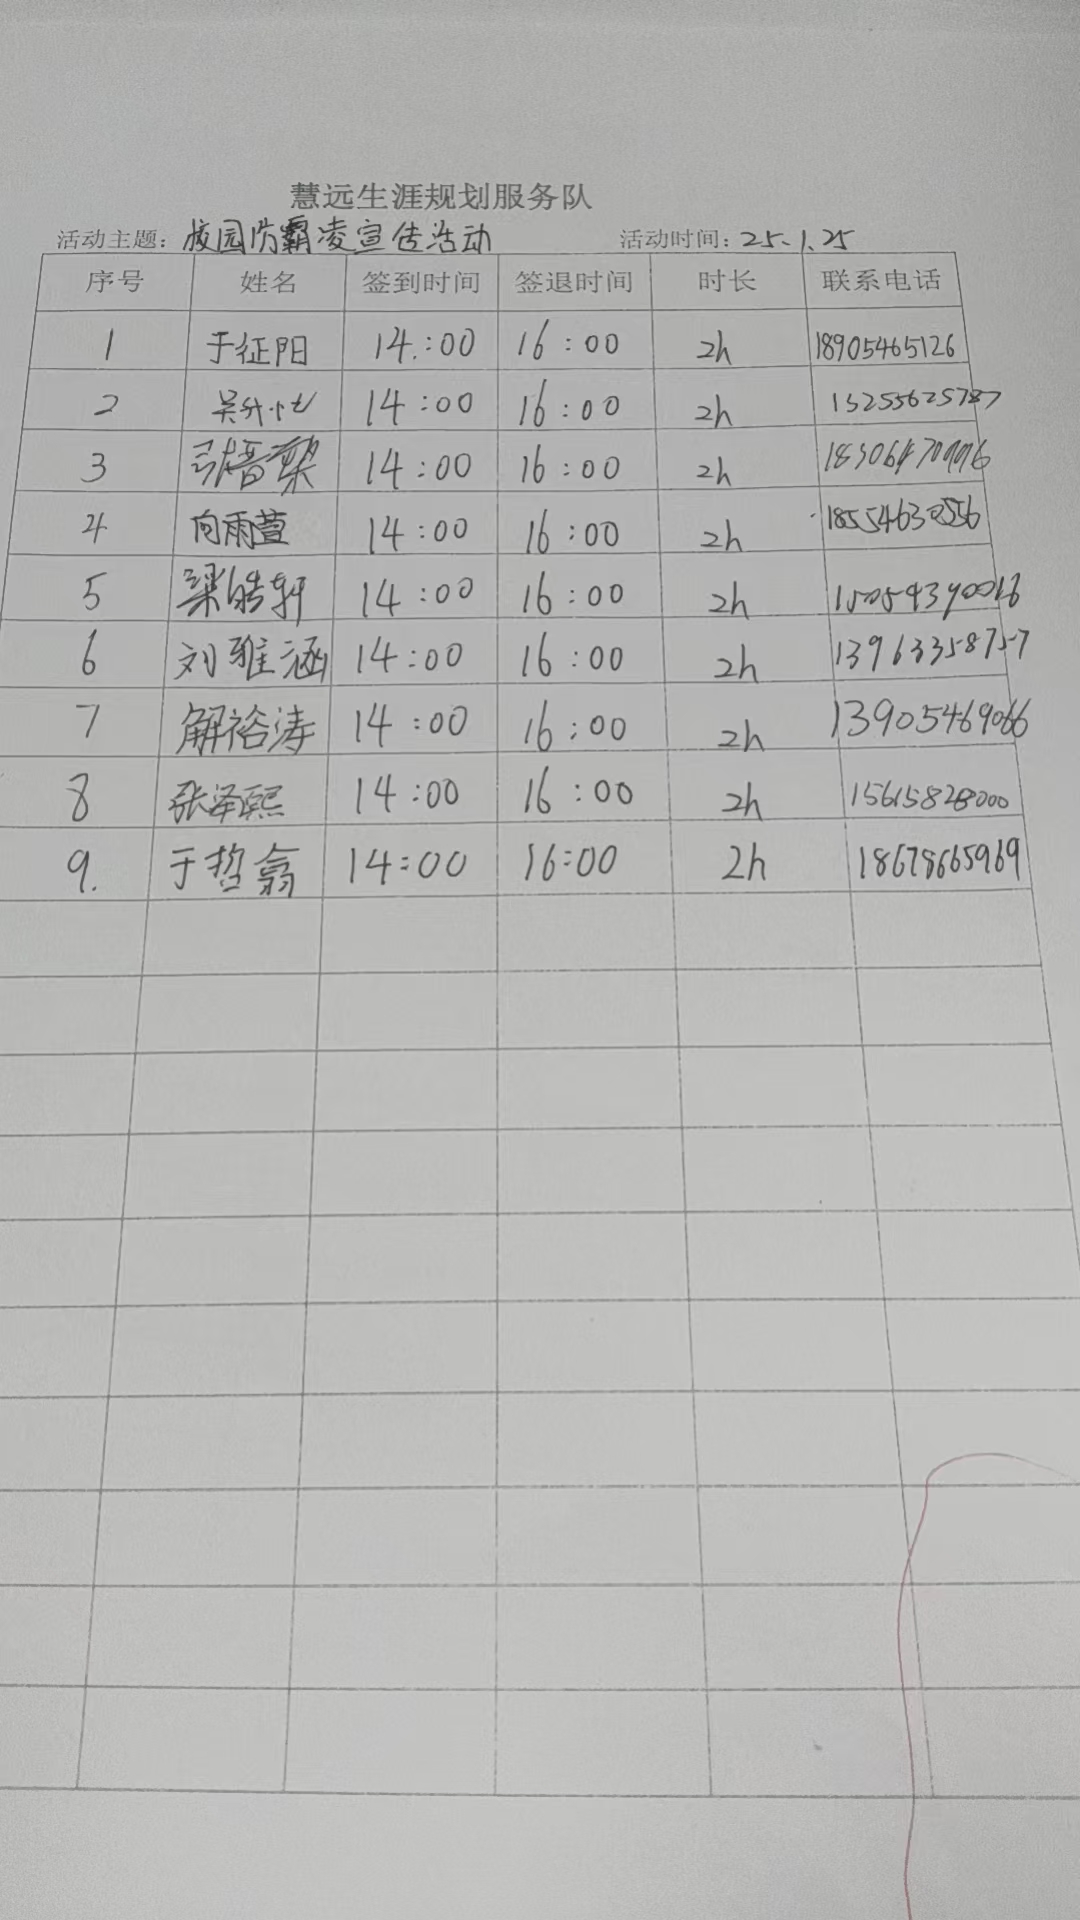 慧远生涯规划服务队
活动主题：校园防霸凌宣传活动 活动时间：25.1.25
序号 姓名 签到时间 签退时间 时长 联系电话
1 于征阳 14:00 16:00 2h 18905465126
2 14:00 16:00 2h 13255625787
3 14:00 16:00 2h
4 向雨萱 14:00 16:00 2h 18554630556
5 梁皓轩 14:00 16:00 2h
6 刘雅涵 14:00 16:00 2h 13963358757
7 解裕涛 14:00 16:00 2h 13905469066
8 张泽熙 14:00 16:00 2h 15615828000
9. 于哲翕 14:00 16:00 2h 18678665969